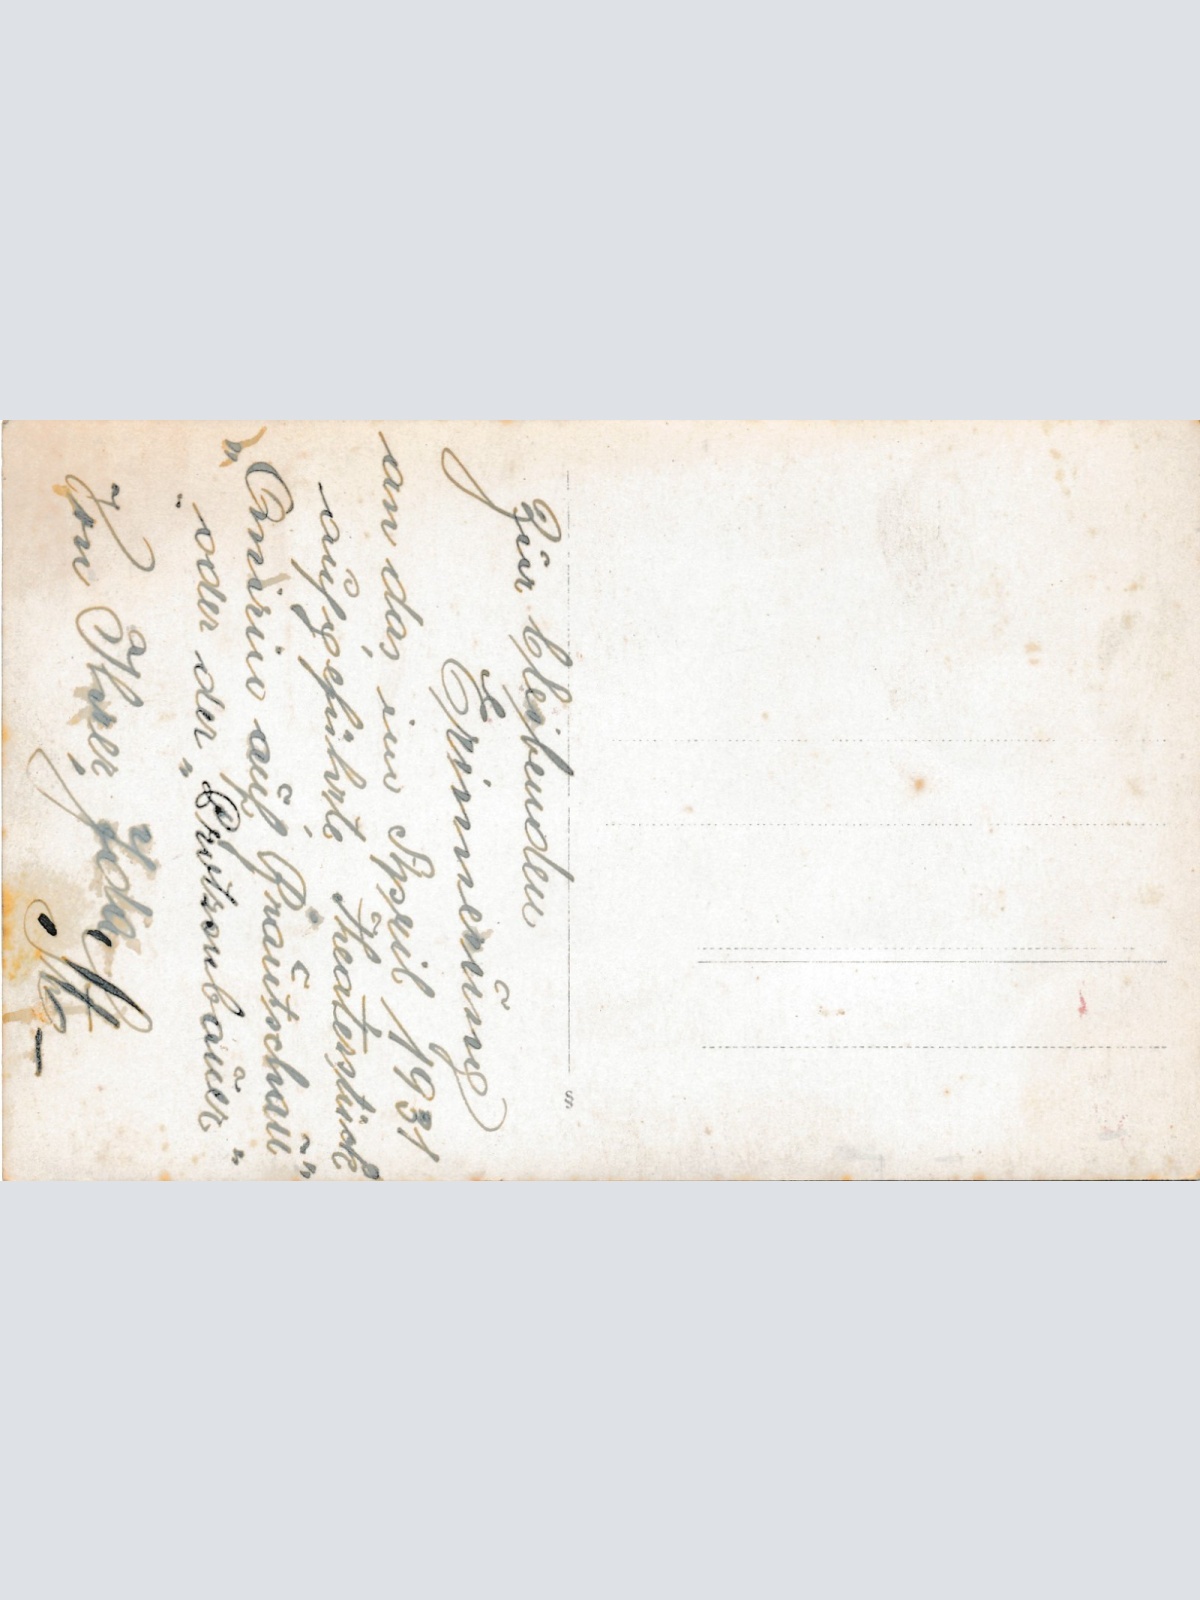 Zur bleibenden
Erinnerung
an das, im April 1931
aufgeführte Theaterstück
„Amerino auf Brautschau"
oder der „Protzenbauer"
Von Ihrer,
§